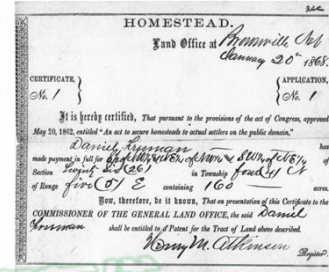 HOMESTEAD.
Land Office at Brownville Neb
January 20th 1868.
CERTIFICATE, No. 1
APPLICATION, No. 1
It is hereby certified, That pursuant to the provisions of the act of Congress, approved
May 20, 1862, entitled "An act to secure homesteads to actual settlers on the public domain,"
Daniel Freeman has
made payment in full for of NW & SW of NE
Section twenty six (26) in Township four (4) N
of Range five (5) E containing 160 acres.
Now, therefore, be it known, That on presentation of this Certificate to the
COMMISSIONER OF THE GENERAL LAND OFFICE, the said Daniel
Freeman shall be entitled to a Patent for the Tract of Land above described.
Henry M. Atkinson
Register.